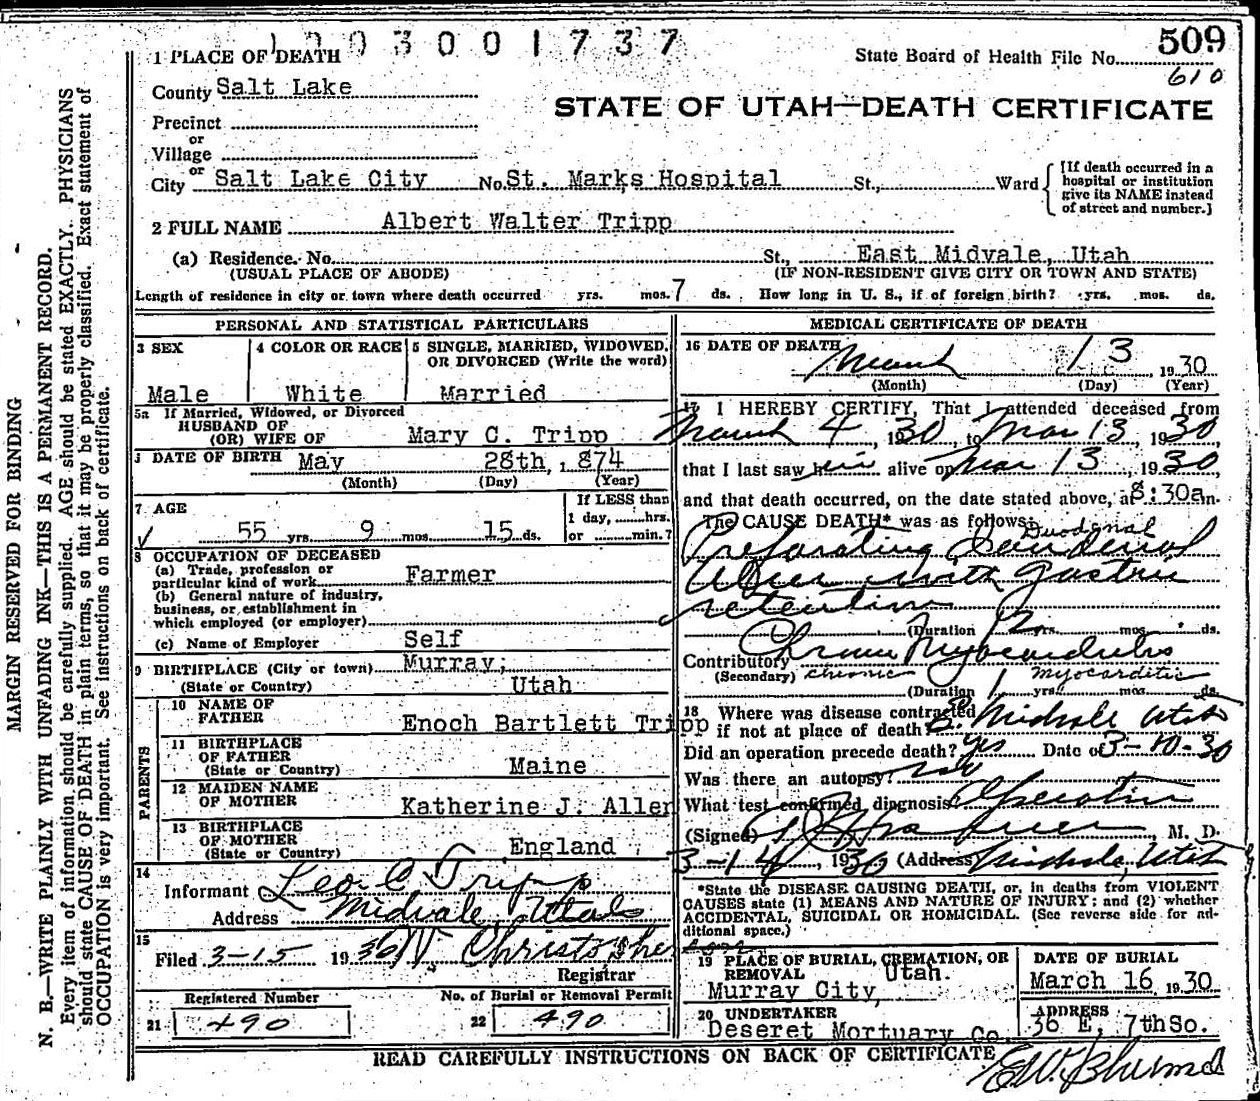 1003001737
1 PLACE OF DEATH
State Board of Health File No. 509
610
County Salt Lake
STATE OF UTAH—DEATH CERTIFICATE
Precinct
or
Village
or
City Salt Lake City No. St. Marks Hospital St., Ward
[If death occurred in a hospital or institution give its NAME instead of street and number.]
2 FULL NAME Albert Walter Tripp
(a) Residence. No. St., East Midvale, Utah
(USUAL PLACE OF ABODE) (IF NON-RESIDENT GIVE CITY OR TOWN AND STATE)
Length of residence in city or town where death occurred yrs. mos. 7 ds. How long in U. S., if of foreign birth? yrs. mos. ds.
PERSONAL AND STATISTICAL PARTICULARS
3 SEX 4 COLOR OR RACE 5 SINGLE, MARRIED, WIDOWED, OR DIVORCED (Write the word)
Male White Married
5a If Married, Widowed, or Divorced
HUSBAND OF
(OR) WIFE OF Mary C. Tripp
DATE OF BIRTH May 28th, 1874
(Month) (Day) (Year)
7 AGE If LESS than
1 day, hrs.
55 yrs. 9 mos. 15 ds. or min.?
8 OCCUPATION OF DECEASED
(a) Trade, profession or
particular kind of work Farmer
(b) General nature of industry,
business, or establishment in
which employed (or employer)
(c) Name of Employer Self
9 BIRTHPLACE (City or town) Murray,
(State or Country) Utah
PARENTS
10 NAME OF
FATHER Enoch Bartlett Tripp
11 BIRTHPLACE
OF FATHER
(State or Country) Maine
12 MAIDEN NAME
OF MOTHER Katherine J. Allen
13 BIRTHPLACE
OF MOTHER
(State or Country) England
14
Informant Leo C Tripp
Address Midvale Utah
15
Filed 3-15 1930 W Christopherson
Registrar
Registered Number No. of Burial or Removal Permit
21 490 22 490
MEDICAL CERTIFICATE OF DEATH
16 DATE OF DEATH March 13 1930
(Month) (Day) (Year)
17 I HEREBY CERTIFY, That I attended deceased from
March 4, 1930, to Mar 13, 1930,
that I last saw him alive on Mar 13, 1930
and that death occurred, on the date stated above, at 8:30am.
The CAUSE DEATH* was as follows:
Duodenal
Perforating Duodenal
Ulcer with gastric
retention
(Duration yrs. mos. ds.
Contributory Chronic Myocarditis
(Secondary) chronic myocarditis
(Duration 1 yrs. mos. ds.
18 Where was disease contracted
if not at place of death? E. Midvale Utah
Did an operation precede death? yes Date of 3-10-30
Was there an autopsy? no
What test confirmed diagnosis? Operation
(Signed) M. D.
3-14, 1930 (Address) Midvale, Utah
*State the DISEASE CAUSING DEATH, or, in deaths from VIOLENT
CAUSES state (1) MEANS AND NATURE OF INJURY; and (2) whether
ACCIDENTAL, SUICIDAL OR HOMICIDAL. (See reverse side for additional space.)
19 PLACE OF BURIAL, CREMATION, OR
REMOVAL Utah.
Murray City,
DATE OF BURIAL
March 16 1930
20 UNDERTAKER
Deseret Mortuary Co.
ADDRESS
36 E, 7th So.
READ CAREFULLY INSTRUCTIONS ON BACK OF CERTIFICATE
MARGIN RESERVED FOR BINDING
N. B.—WRITE PLAINLY WITH UNFADING INK—THIS IS A PERMANENT RECORD.
Every item of information should be carefully supplied. AGE should be stated EXACTLY. PHYSICIANS
should state CAUSE OF DEATH in plain terms, so that it may be properly classified. Exact statement of
OCCUPATION is very important. See instructions on back of certificate.